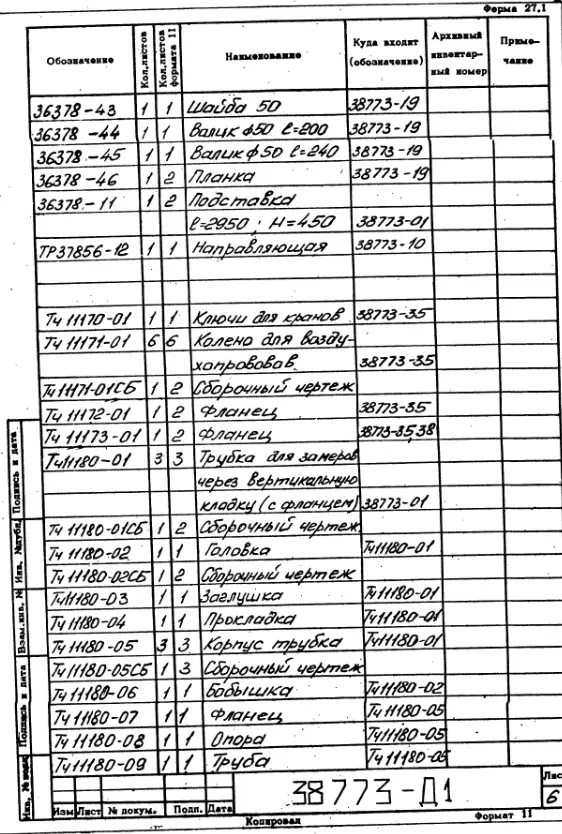 Форма 27.1
Обозначение Кол.листов Кол.листов формата 11 Наименование Куда входит (обозначение) Архивный инвентарный номер Примечание
36378-43 1 1 Шайба 50 38773-19
36378-44 1 1 Валик ф50 ℓ=200 38773-19
36378-45 1 1 Валик ф50 ℓ=240 38773-19
36378-46 1 2 Планка 38773-19
36378-11 1 2 Подставка
ℓ=2950, H=450 38773-01
ТР37856-12 1 1 Направляющая 38773-10
Тч 11170-01 1 1 Ключи для кранов 38773-35
Тч 11171-01 6 6 Колено для возду-
хопроводов 38773-35
Тч11171-01СБ 1 2 Сборочный чертеж
Тч 11172-01 1 2 Фланец 38773-35
Тч 11173-01 1 2 Фланец 38773-35,38
Тч11180-01 3 3 Трубка для замеров
через вертикальную
кладку (с фланцем) 38773-01
Тч 11180-01СБ 1 2 Сборочный чертеж
Тч 11180-02 1 1 Головка Тч11180-01
Тч 11180-02СБ 1 2 Сборочный чертеж
Тч11180-03 1 1 Заглушка Тч11180-01
Тч 11180-04 1 1 Прокладка Тч11180-01
Тч 11180-05 3 3 Корпус трубка Тч11180-01
Тч11180-05СБ 1 3 Сборочный чертеж
Тч 11180-06 1 1 Бобышка Тч11180-02
Тч 11180-07 1 1 Фланец Тч 11180-05
Тч 11180-08 1 1 Опора Тч11180-05
Тч11180-09 1 1 Труба Тч 11180-05
Подпись и дата
Инв. №дубл.
Взам.инв. №
Подпись и дата
Инв. №
Изм Лист № докум. Подп. Дата
38773-Д1
Лис
6
Копировал Формат 11